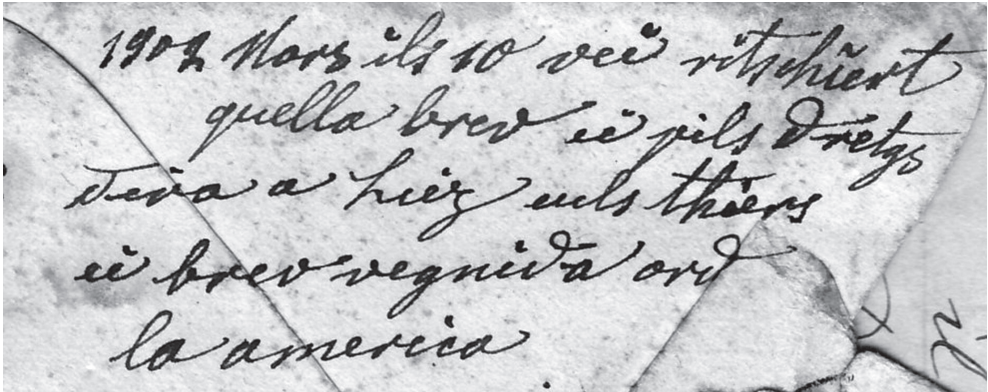 1902 Mars ils 10 veü ritschiert
quella brev eü pils dretgs
d'eira a Liez uils thiers
eü brev vegnida ord
la america